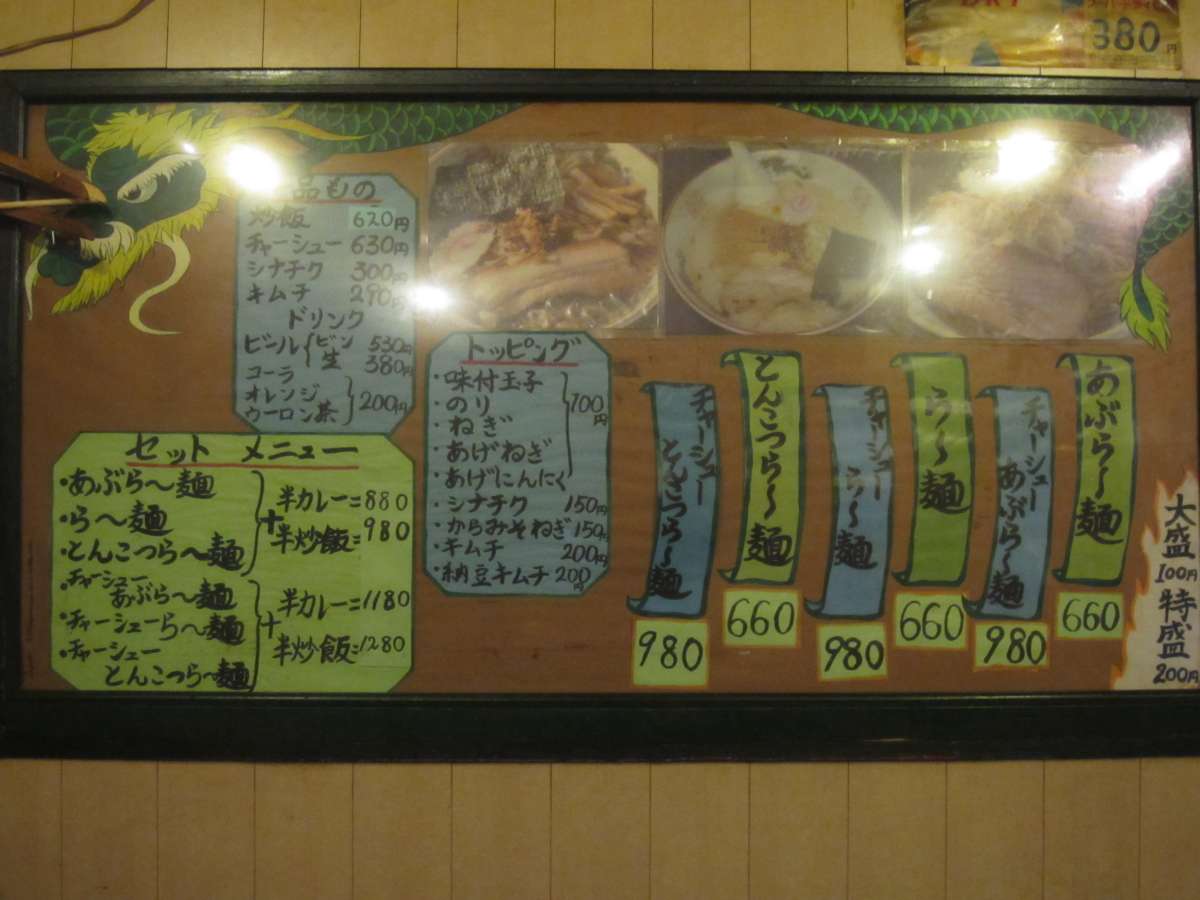 380円
品もの
炒飯 620円
チャーシュー 630円
シナチク 300円
キムチ 290円
ドリンク
ビール ビン 530円
生 380円
コーラ
オレンジ
ウーロン茶 200円
セットメニュー
・あぶら〜麺
・ら〜麺
・とんこつら〜麺
+
半カレー=880
半炒飯=980
・チャーシューあぶら〜麺
・チャーシューら〜麺
・チャーシュー
とんこつら〜麺
+
半カレー=1180
半炒飯=1280
トッピング
・味付玉子
・のり
・ねぎ
・あげねぎ
・あげにんにく
100円
・シナチク 150円
・からみそねぎ 150円
・キムチ 200円
・納豆キムチ 200円
あぶら〜麺
660
チャーシューあぶら〜麺
980
ら〜麺
660
チャーシューら〜麺
980
とんこつら〜麺
660
チャーシューとんこつら〜麺
980
大盛
100円
特盛
200円